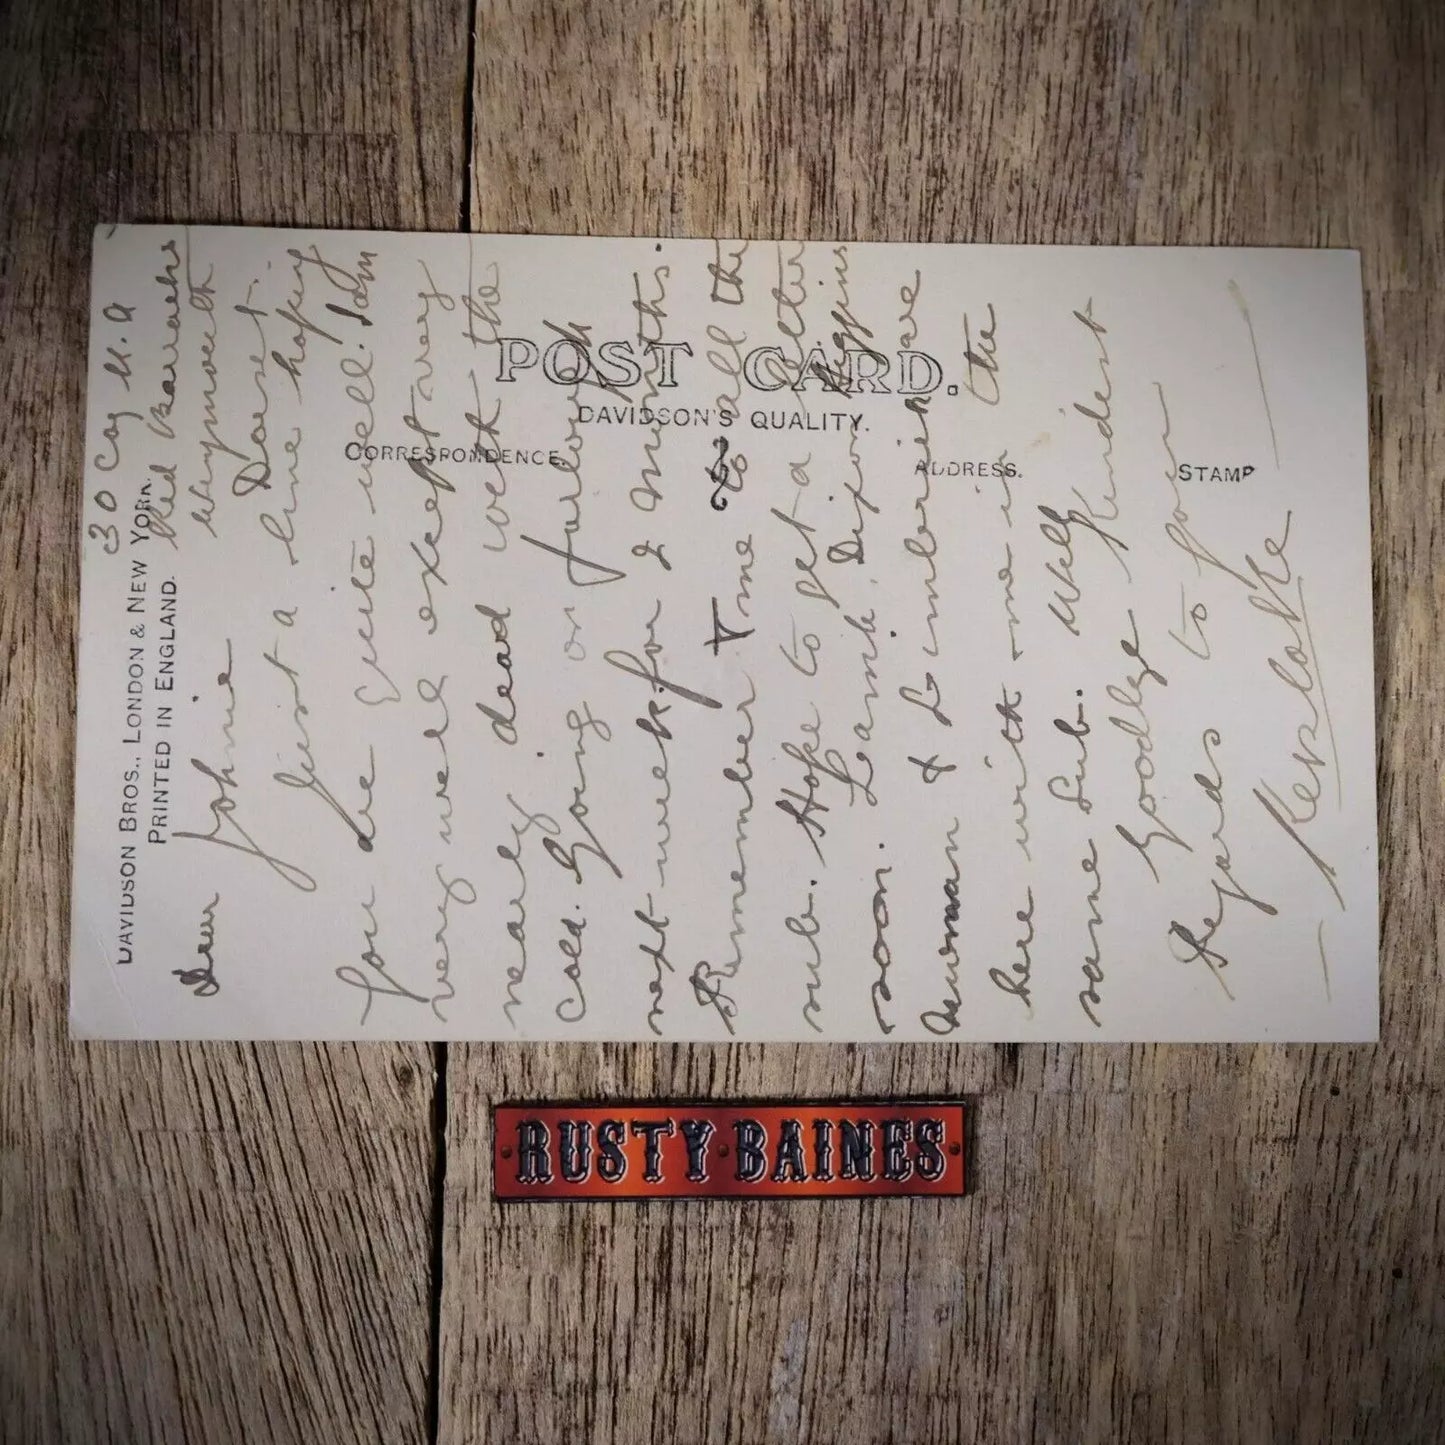 POST CARD.
DAVIDSON'S QUALITY.
CORRESPONDENCE.
ADDRESS.
STAMP
DAVIDSON BROS., LONDON & NEW YORK.
PRINTED IN ENGLAND.
30 Coy
Red Barracks
Weymouth
Dorset.
Dear Johnie
Just a line hoping
you are quite well. I am
very well except very
nearly dead with the
cold. Going on furlough
next week for 2 months.
Remember me to all the
sub. Hope to get a letter
soon. Dixon Higgins
Newman & are
here with me in the
same sub. Well
Goodbye Kindest
Regards to you
RUSTY BAINES